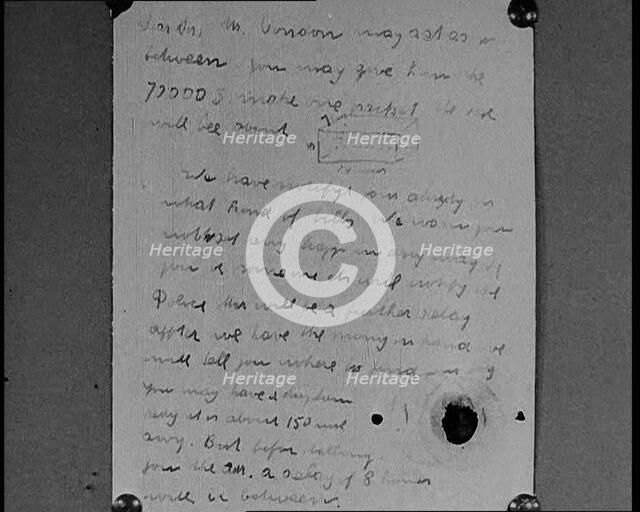 Mr. Condon may act as
between. You may give him the
70000 $ make one paket. the size
will bee about
We have notifyt you already in
what kind of bills. We warn you
not to set any trapp in any way. If
you or someone els will notify the
Police ther will be a further delay
affter we have the mony in hand we
will tell you where to find
You may have a
redy it is about 150 mil
awy. But befor telling
you the adr. a delay of 8 houers
will be between.
Heritage Heritage
Heritage Heritage
Heritage Heritage
©